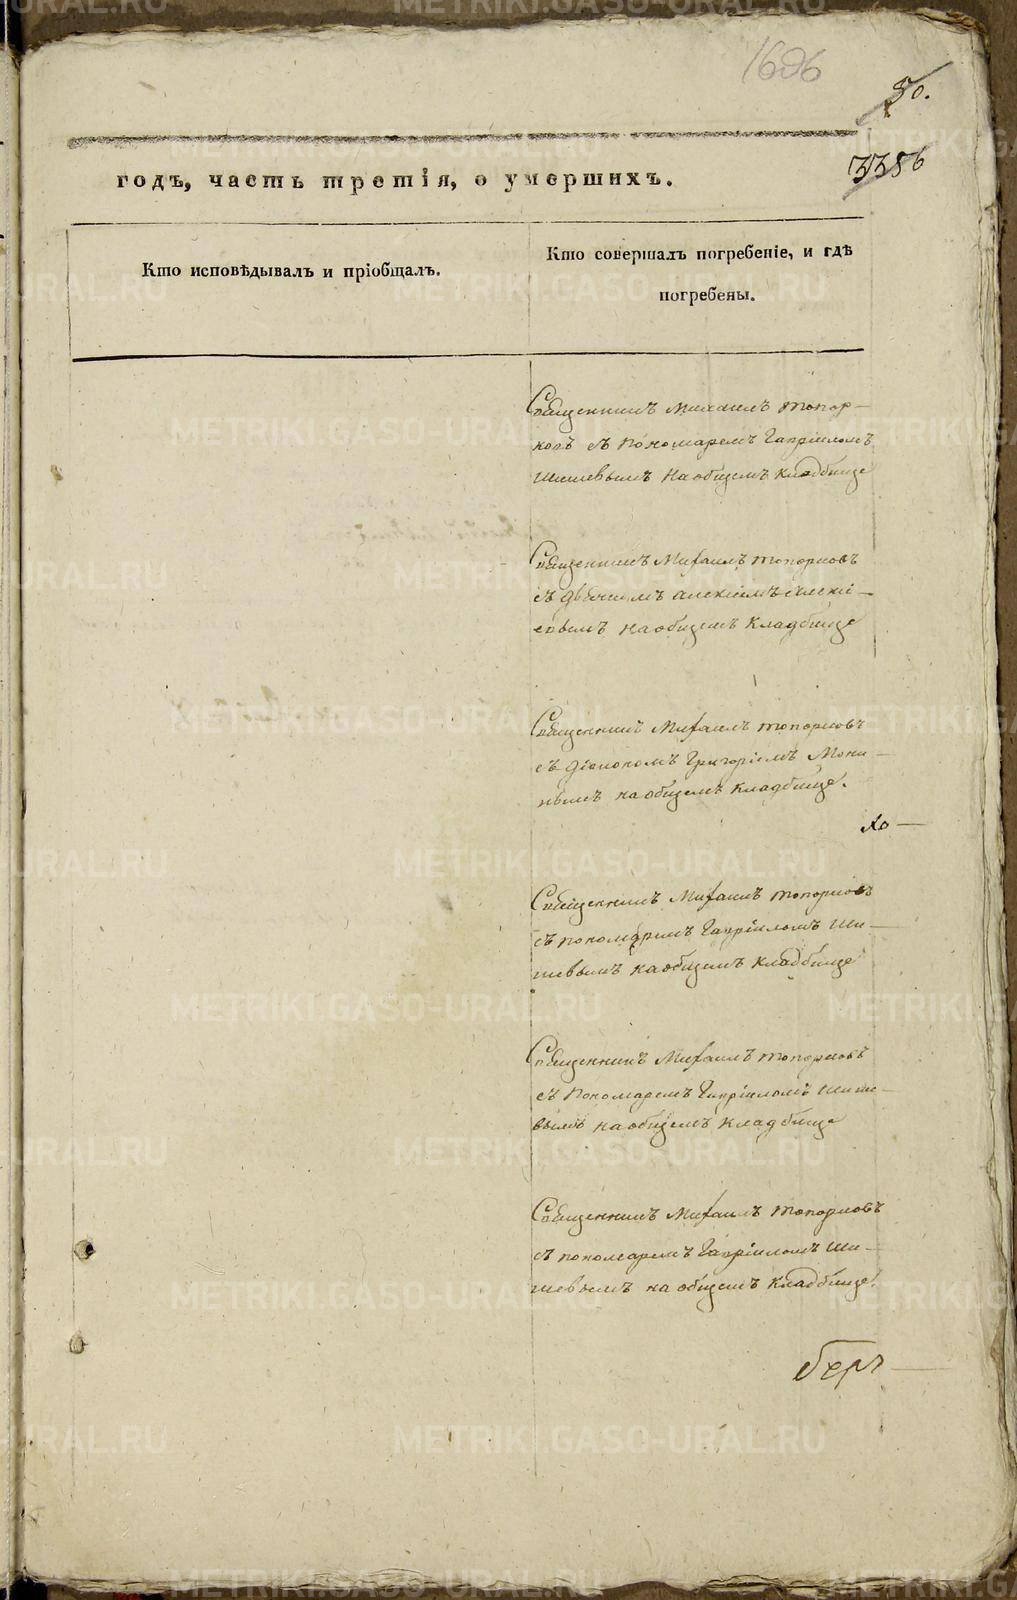 1696
50.
3386
годъ, часть третія, о умершихъ.
Кто исповѣдывалъ и пріобщалъ.
Кто совершалъ погребеніе, и гдѣ
погребены.
Священникъ Михаилъ Топор-
ковъ съ Пономаремъ Гавріиломъ
Шишевымъ На общемъ Кладбище
Священникъ Михаилъ Топорковъ
съ дьячкомъ Алексіемъ Алексі-
евымъ на общемъ Кладбище
Священникъ Михаилъ Топорковъ
съ Діакономъ Григоріемъ Мони-
нымъ на общемъ Кладбище.
Хо-
Священникъ Михаилъ Топорковъ
съ пономаремъ Гавріиломъ Ши-
шевымъ на общемъ Кладбище
Священникъ Михаилъ Топорковъ
съ Пономаремъ Гавріиломъ Шише-
вымъ на общемъ Кладбище
Священникъ Михаилъ Топорковъ
съ пономаремъ Гавріиломъ Ши-
шевымъ на общемъ Кладбище.
METRIKI.GASO-URAL.RU